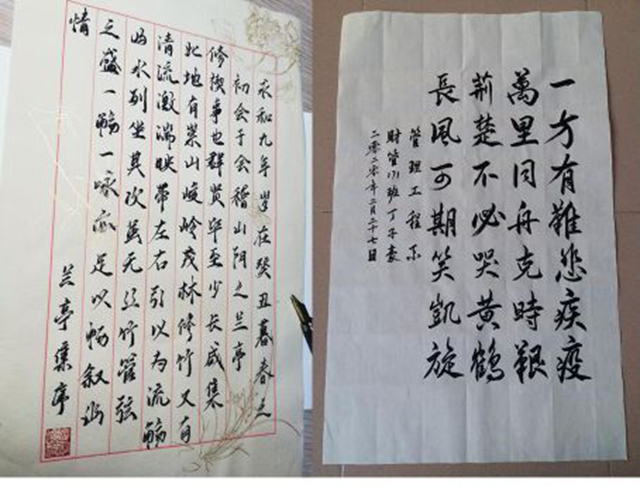 永和九年岁在癸丑暮春之
初会于会稽山阴之兰亭
修禊事也群贤毕至少长咸集
此地有崇山峻岭茂林修竹又有
清流激湍映带左右引以为流觞
曲水列坐其次虽无丝竹管弦
之盛一觞一咏亦足以畅叙幽
情
兰亭集序
一方有難悲疾疫
萬里同舟克時艱
荊楚不必哭黄鶴
長風可期笑凱旋
管理工程系
财管171班丁子豪
二零二零年二月二十七日